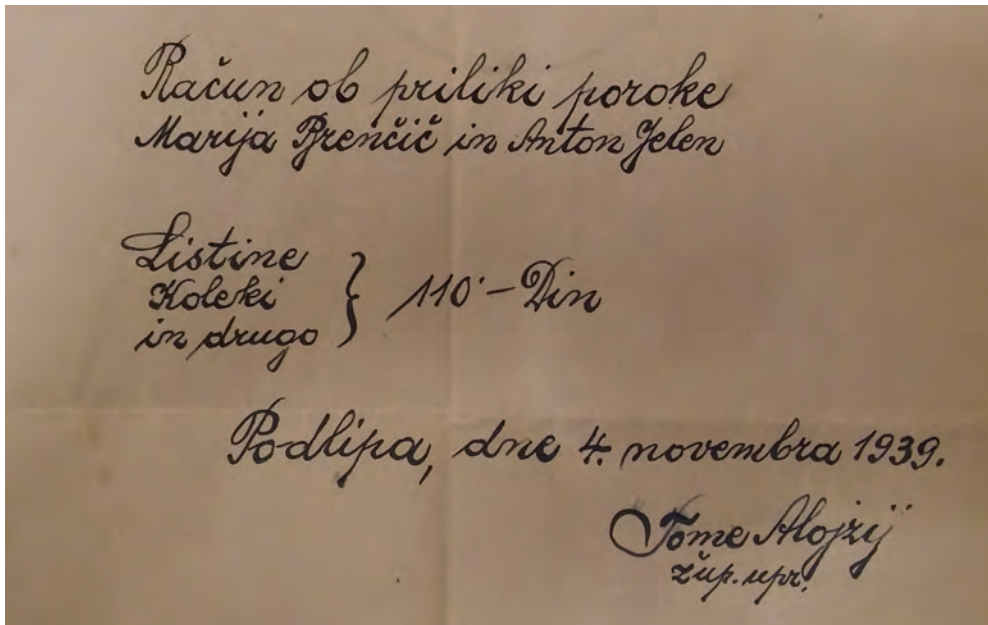 Račun ob priliki poroke
Marija Brenčič in Anton Jelen
Listine
Koleki
in drugo } 110·– Din
Podlipa, dne 4. novembra 1939.
Tome Alojzij
žup. upr.